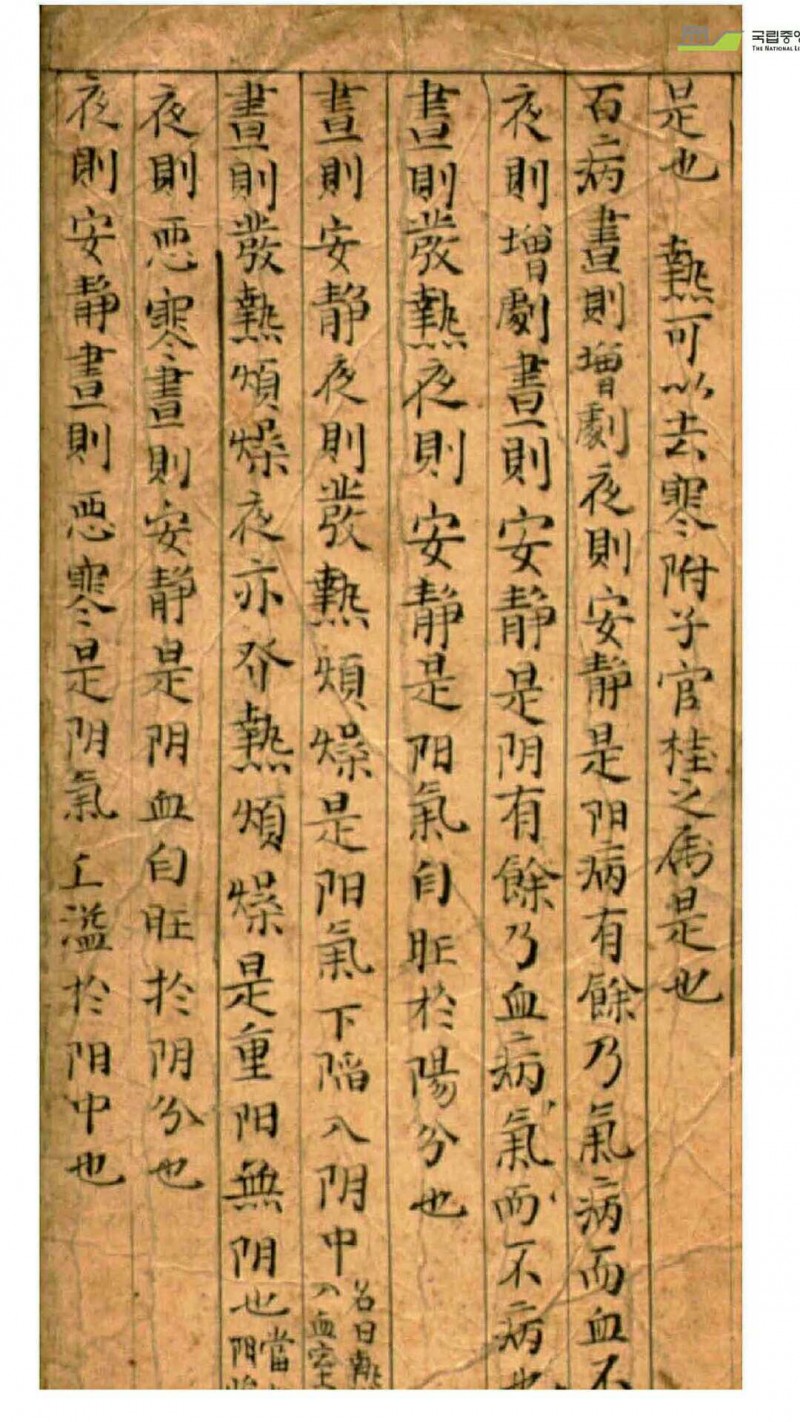 국립중앙
THE NATIONAL LI
是也 熱可以去寒附子官桂之属是也
百病晝則增劇夜則安静是阳病有餘乃氣病而血不
夜則增劇晝則安静是阴有餘乃血病氣而不病也
晝則發熱夜則安静是阳氣自旺於陽分也
晝則安静夜則發熱煩燥是阳氣下陷入阴中名曰熱入血室
晝則發熱煩燥夜亦發熱煩燥是重阳無阴也當
夜則恶寒晝則安静是阴血自旺於阴分也
夜則安静晝則恶寒是阴氣上溢於阳中也